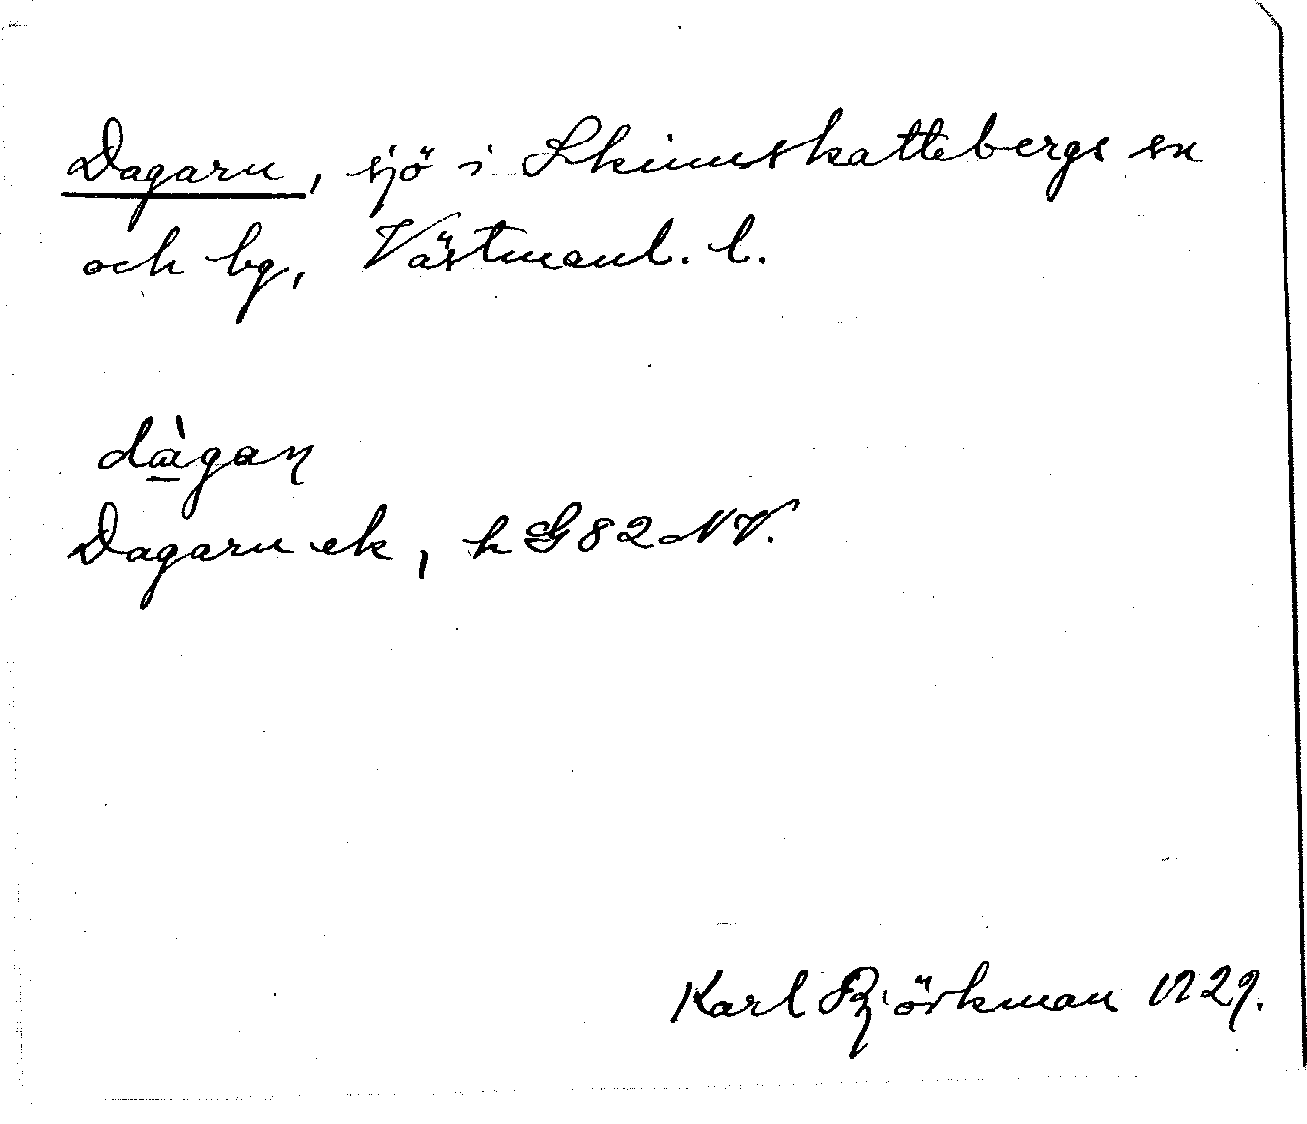 Dagarn, sjö i Skinnskattebergs sn
och bg, Västmanl. l.
dàgaɳ
Dagarn ek, h G 82 NV.
Karl Björkman 1929.